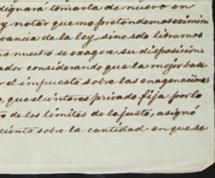 dignará tomarla de nuevo en
y notar que no pretendemos eximir
rancia de la ley, sino solo librarnos
nuestro se exagere su disposicion
ador considerando que la mejor base
r el impuesto sobre las enagenaciones
que el interes privado fija por lo
to de los límites de lo justo, asignó
ciento sobre la cantidad en que se